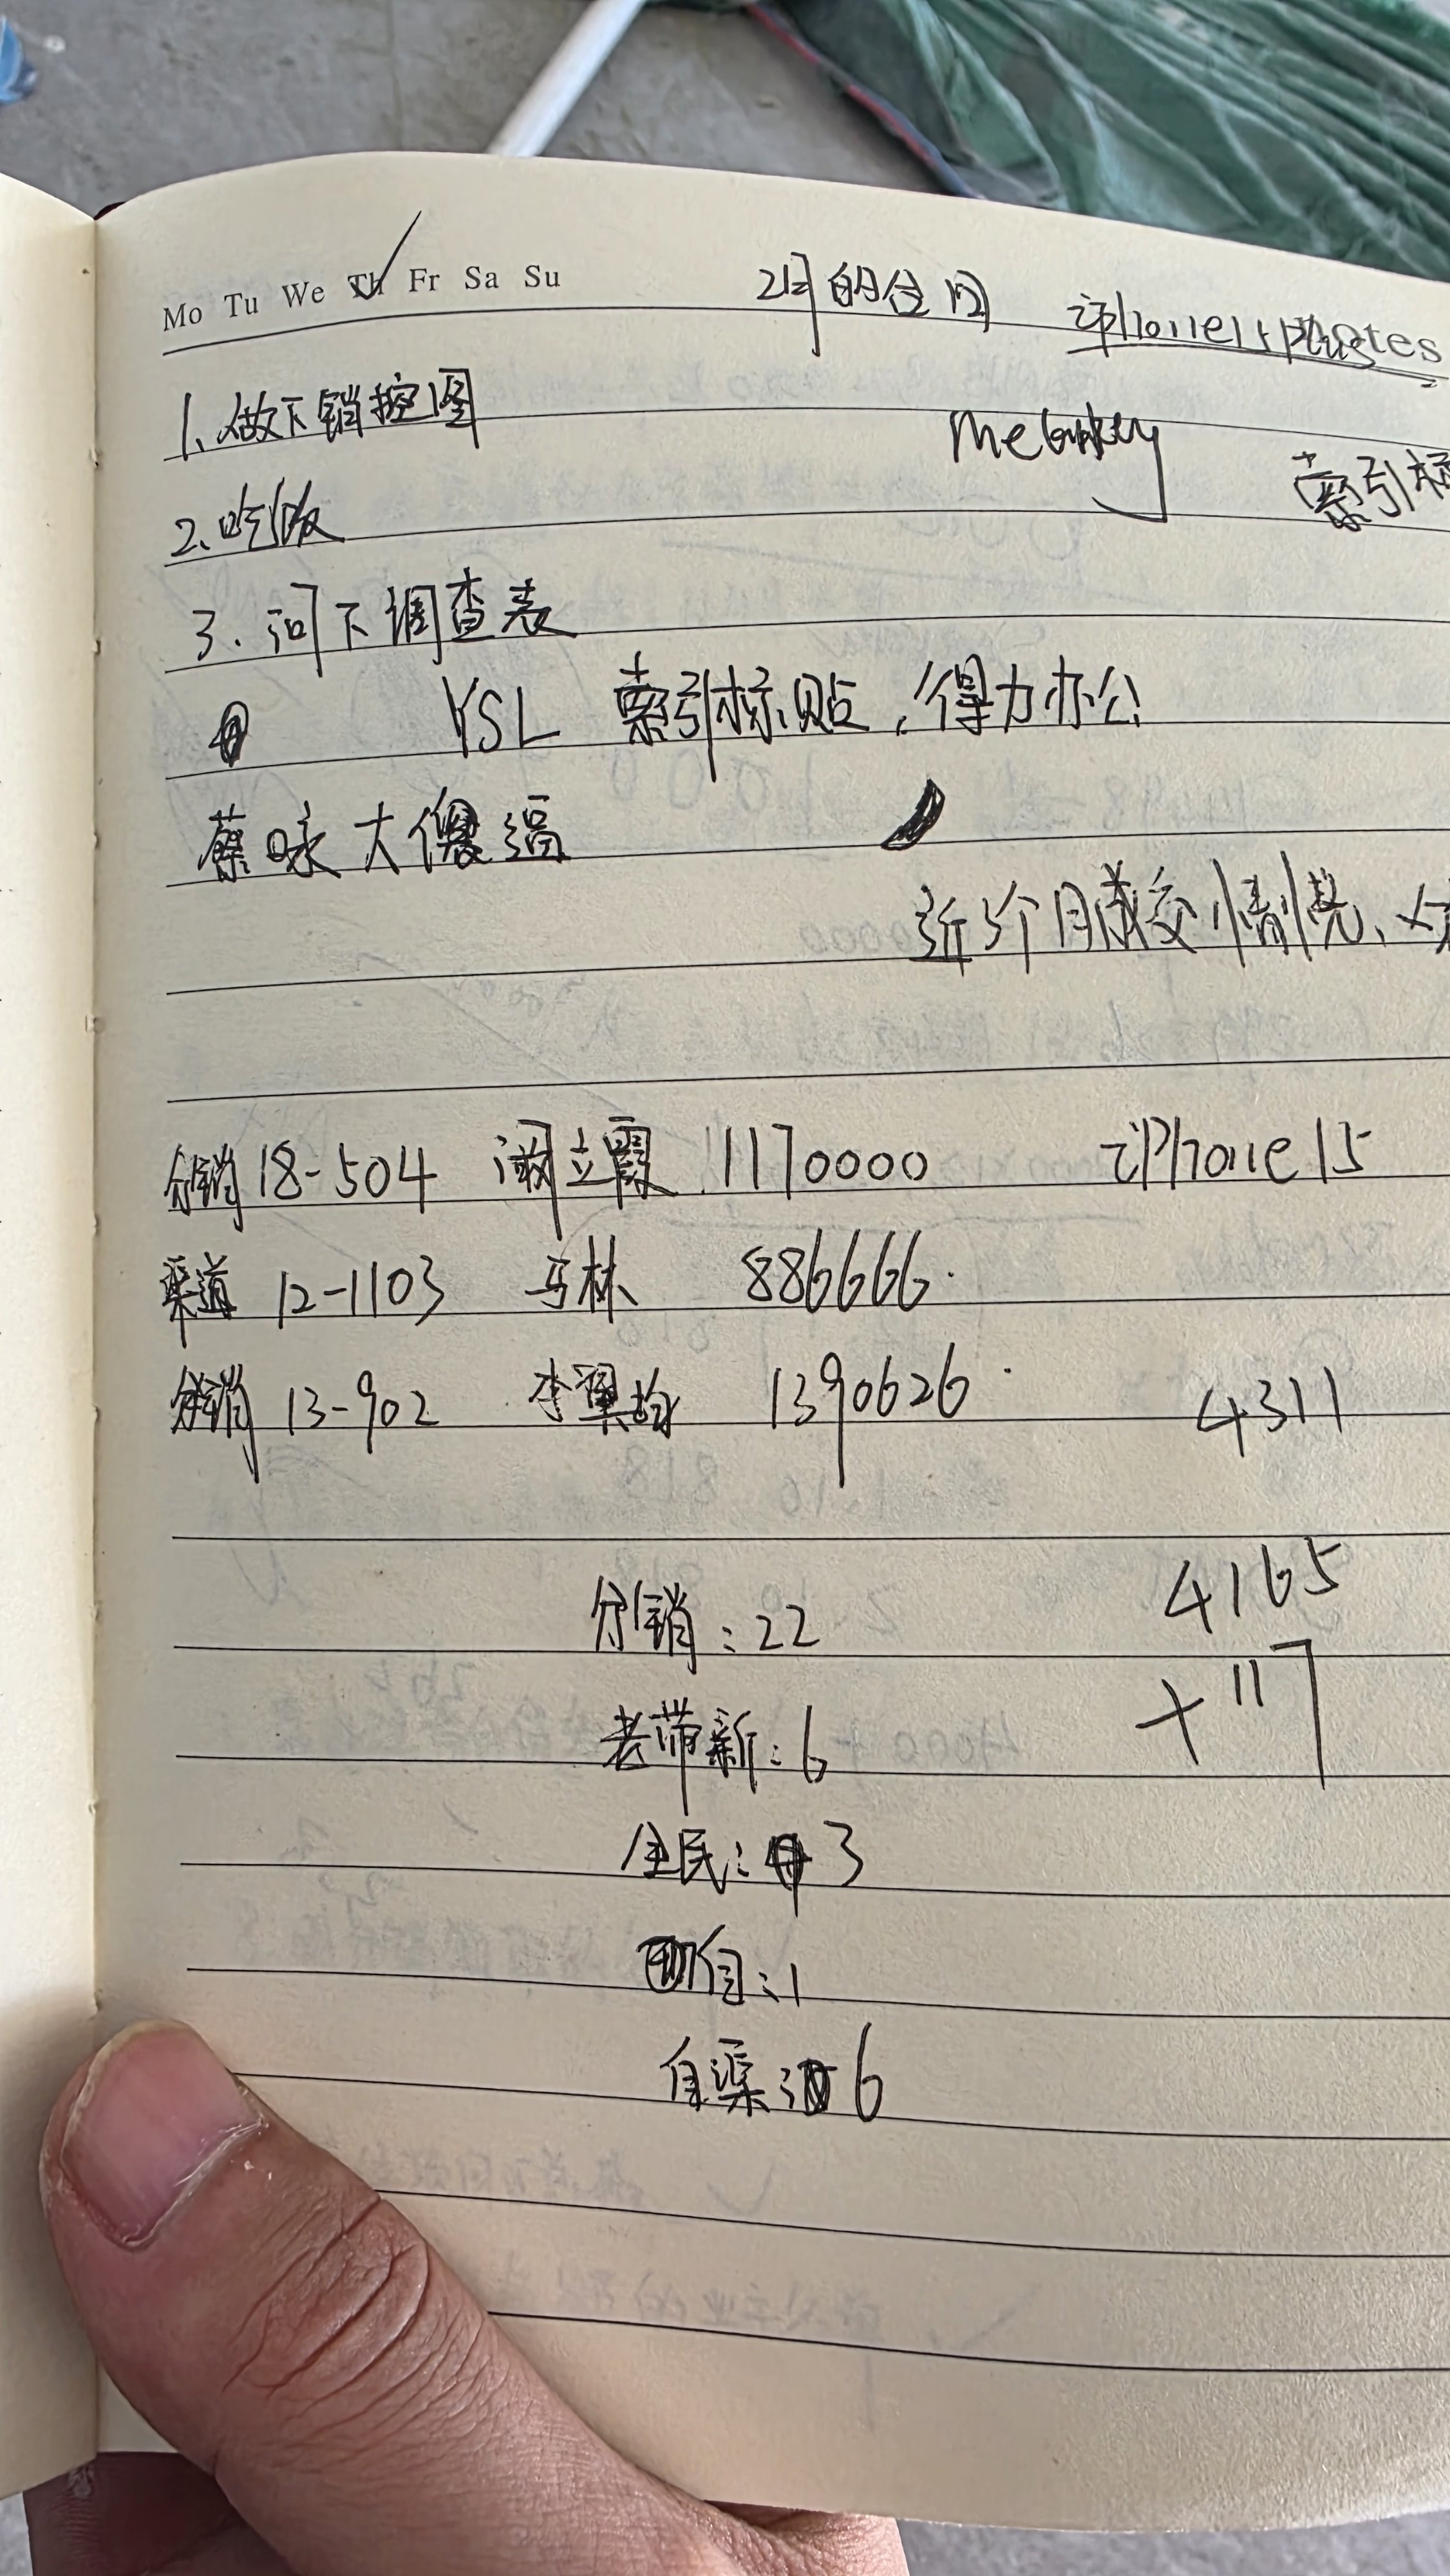 Mo Tu We Th Fr Sa Su
2月的合同
iPhone15 plus
1、做下销控图
索引标
2、吃饭
3.问下调查表
YSL 索引标贴,得力办公
蔡咏大傻逼
近3个月成交情况、
分销 18-504 阚立霞 1170000 iPhone15
渠道 12-1103 马林 886666.
分销 13-902 李翼均 1390626 4311
分销:22 4165
+117
老带新:6
全民:3
自:1
自渠:6